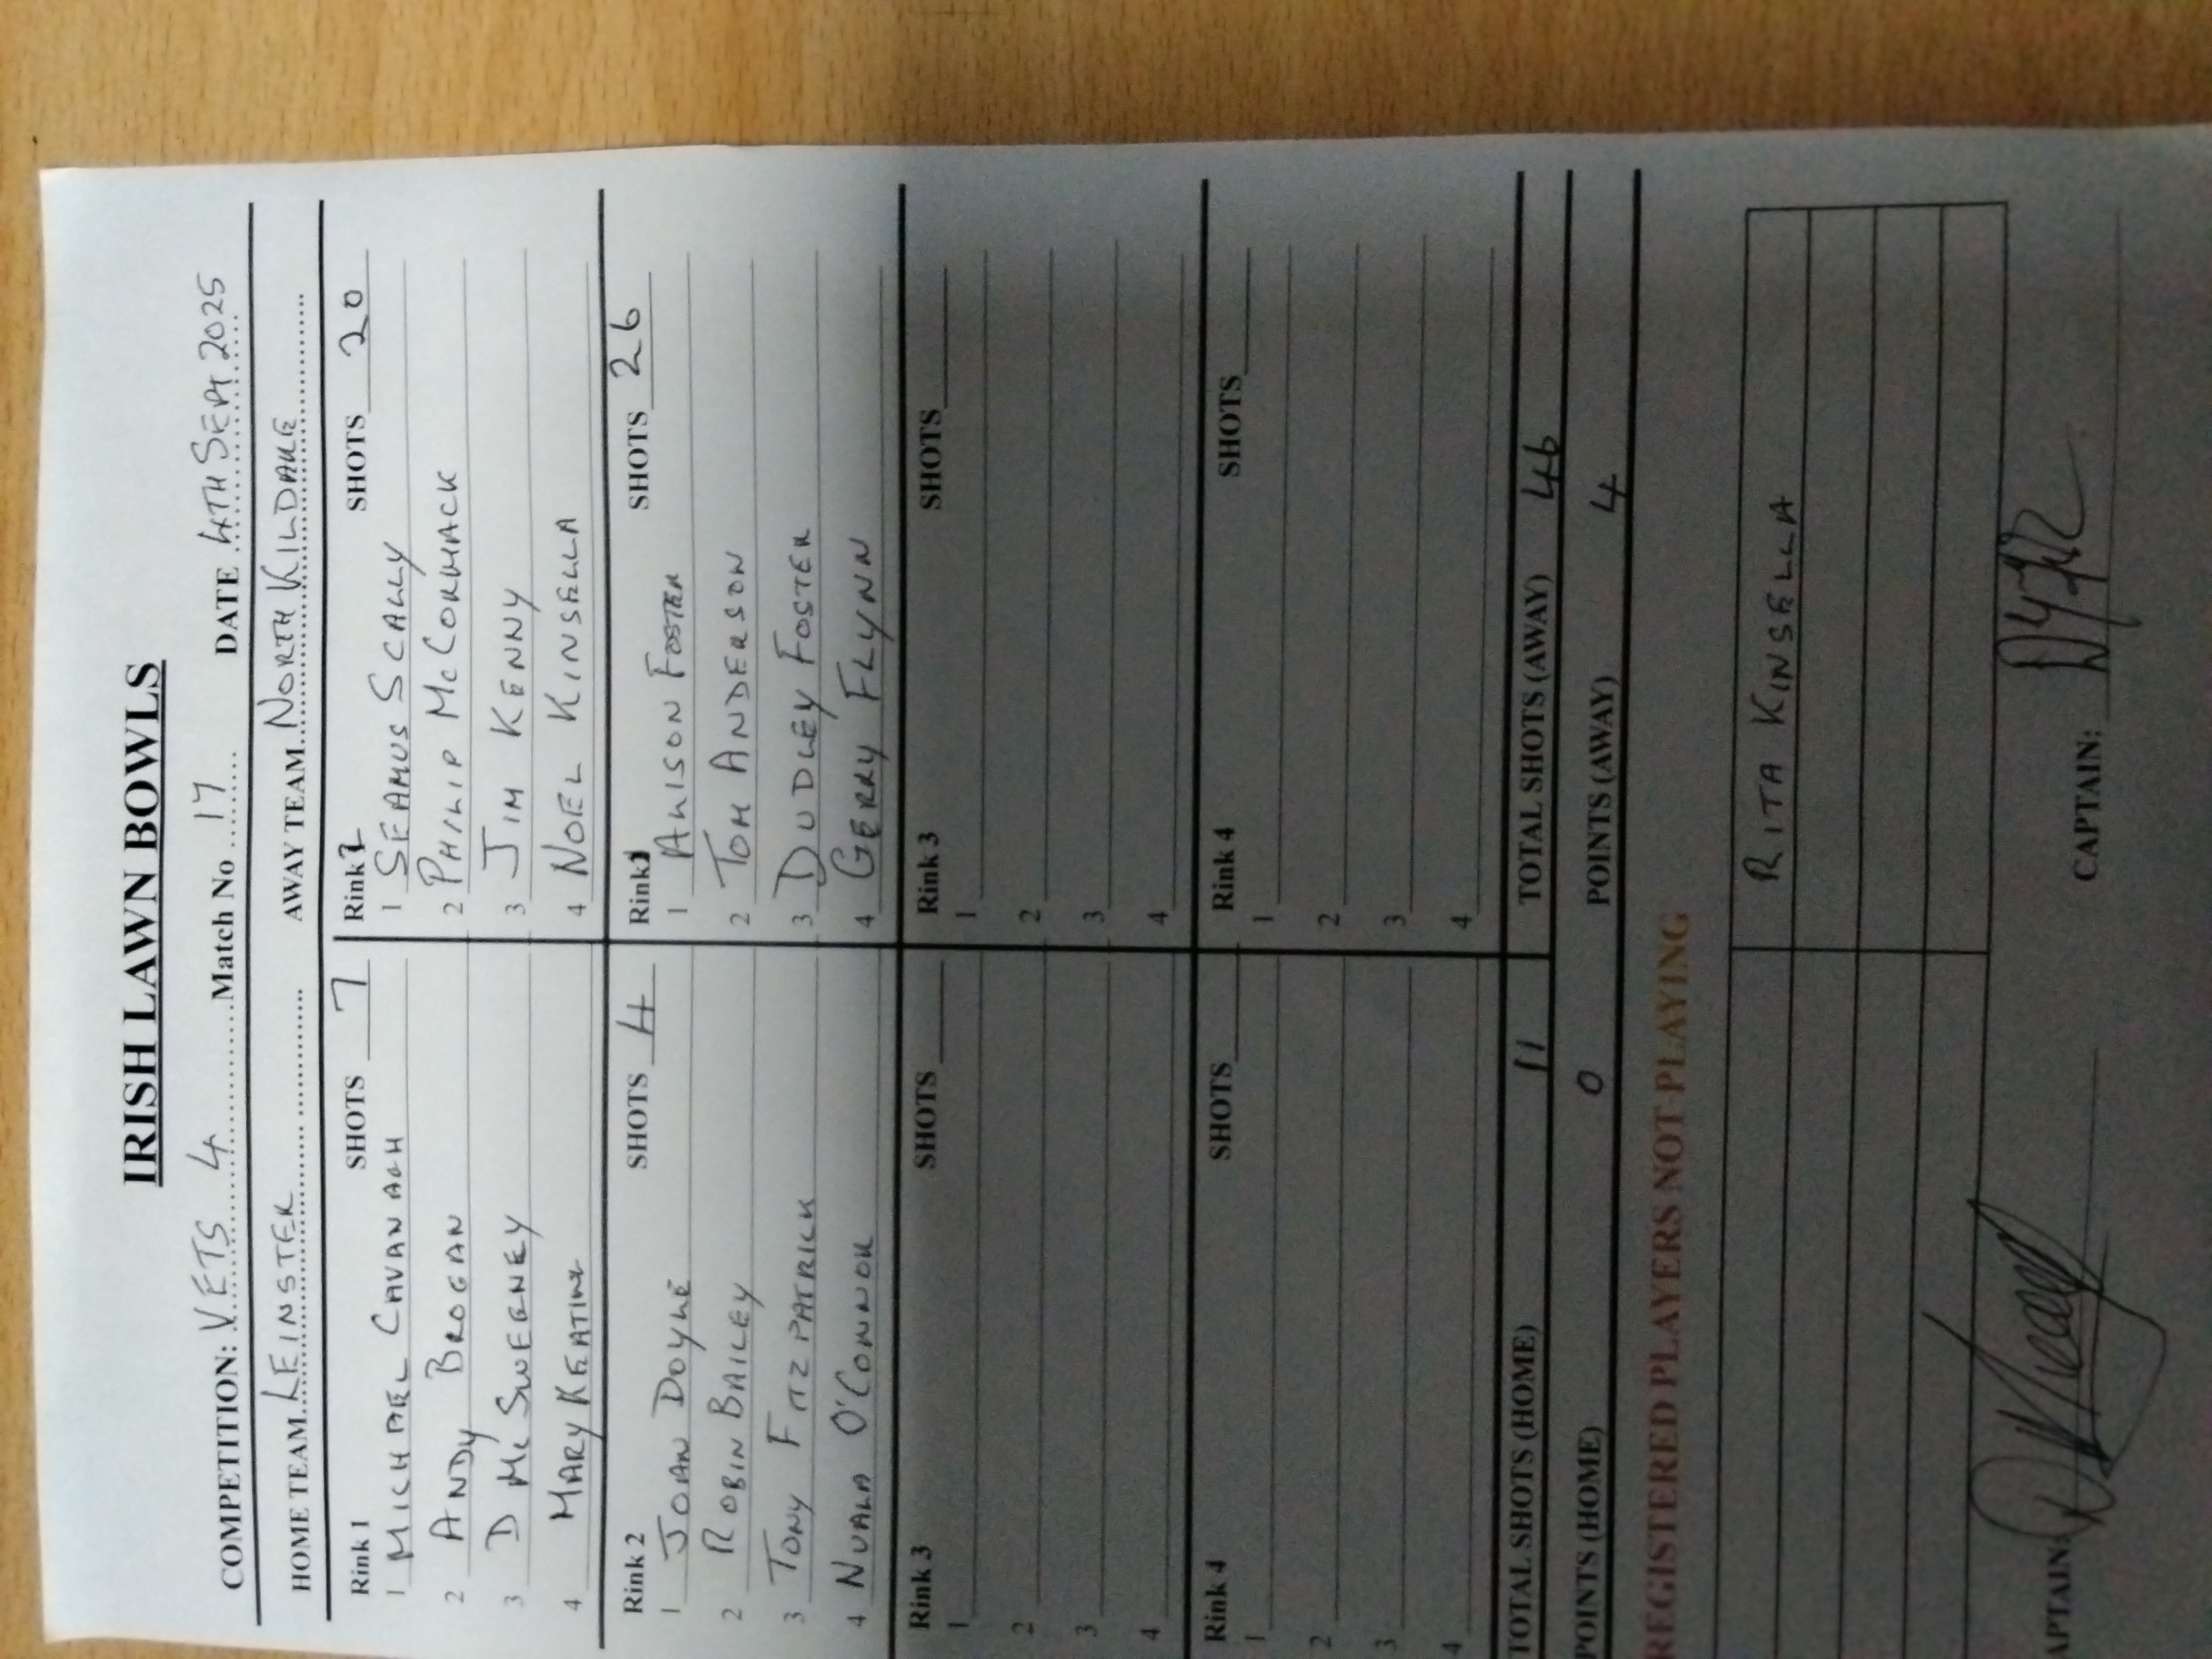 IRISH LAWN BOWLS
COMPETITION: VETS 4 Match No 17 DATE 4TH SEPT 2025
HOME TEAM LEINSTER AWAY TEAM NORTH KILDARE
Rink 1 SHOTS 7 Rink 2 SHOTS 20
1 MICHAEL CAVANAGH 1 SEAMUS SCALLY
2 ANDY BROGAN 2 PHILIP McCORMACK
3 D McSWEENEY 3 JIM KENNY
4 MARY KEATING 4 NOEL KINSELLA
Rink 2 SHOTS 4 Rink 1 SHOTS 26
1 JOAN DOYLE 1 ALISON FOSTER
2 ROBIN BAILEY 2 TOM ANDERSON
3 TONY FITZPATRICK 3 DUDLEY FOSTER
4 NUALA O'CONNOR 4 GERRY FLYNN
Rink 3 SHOTS Rink 3 SHOTS
1 1
2 2
3 3
4 4
Rink 4 SHOTS Rink 4 SHOTS
1 1
2 2
3 3
4 4
TOTAL SHOTS (HOME) 11 TOTAL SHOTS (AWAY) 46
POINTS (HOME) 0 POINTS (AWAY) 4
REGISTERED PLAYERS NOT PLAYING
RITA KINSELLA
APTAIN: CAPTAIN: